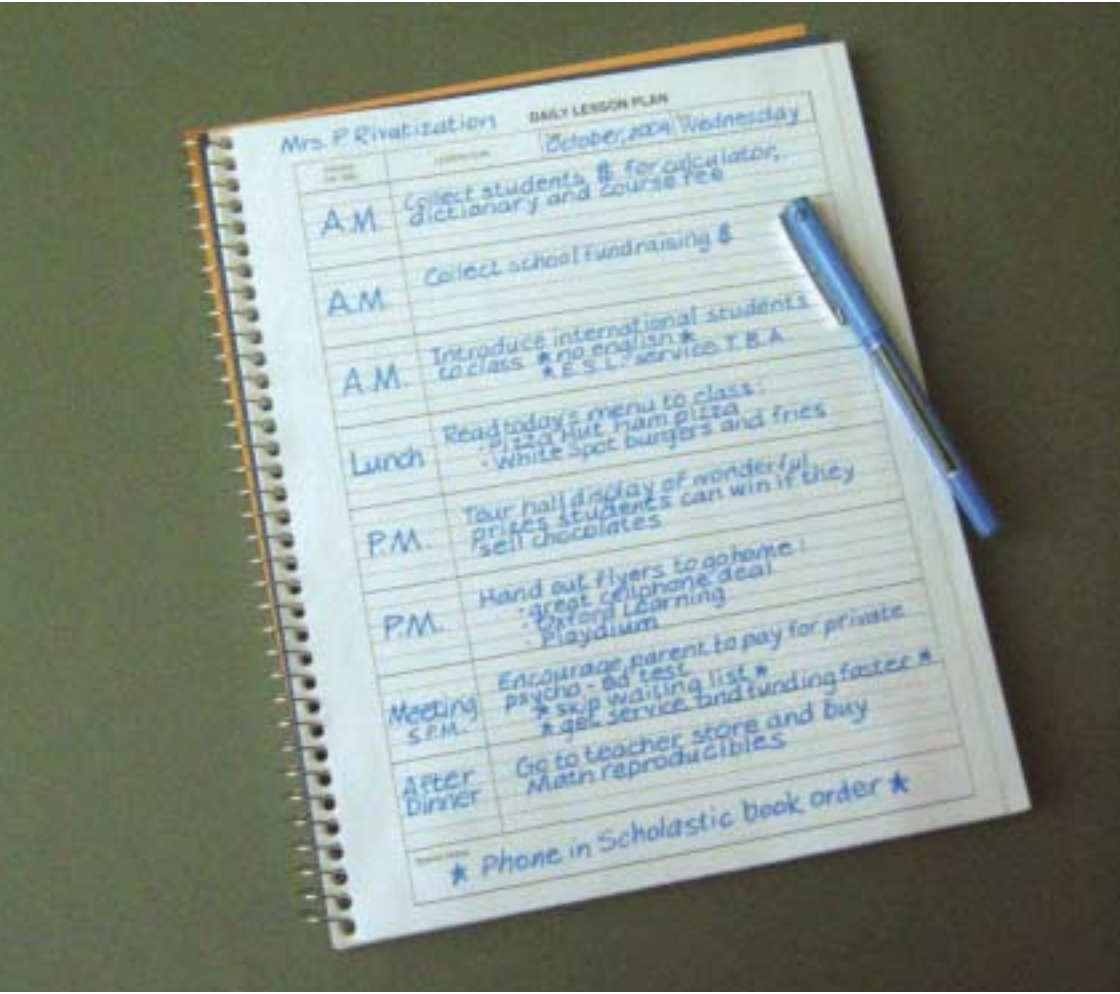 DAILY LESSON PLAN
Mrs. P Rivatization
October, 2004 Wednesday
A.M.
Collect students $ for calculator,
dictionary and course fee
A.M.
Collect school fundraising $
A.M.
Introduce international students
to class * no english *
* E.S.L. service T.B.A.
Lunch
Read today's menu to class:
· Pizza Hut ham pizza
· White Spot burgers and fries
P.M.
Tour hall display of wonderful
prizes students can win if they
sell chocolates
P.M.
Hand out flyers to go home:
· great cellphone deal
· Oxford Learning
· Playdium
Meeting
5 P.M.
Encourage parent to pay for private
psycho-ed test
* skip waiting list *
* get service and funding faster *
After
Dinner
Go to teacher store and buy
Math reproducibles
* Phone in Scholastic book order *